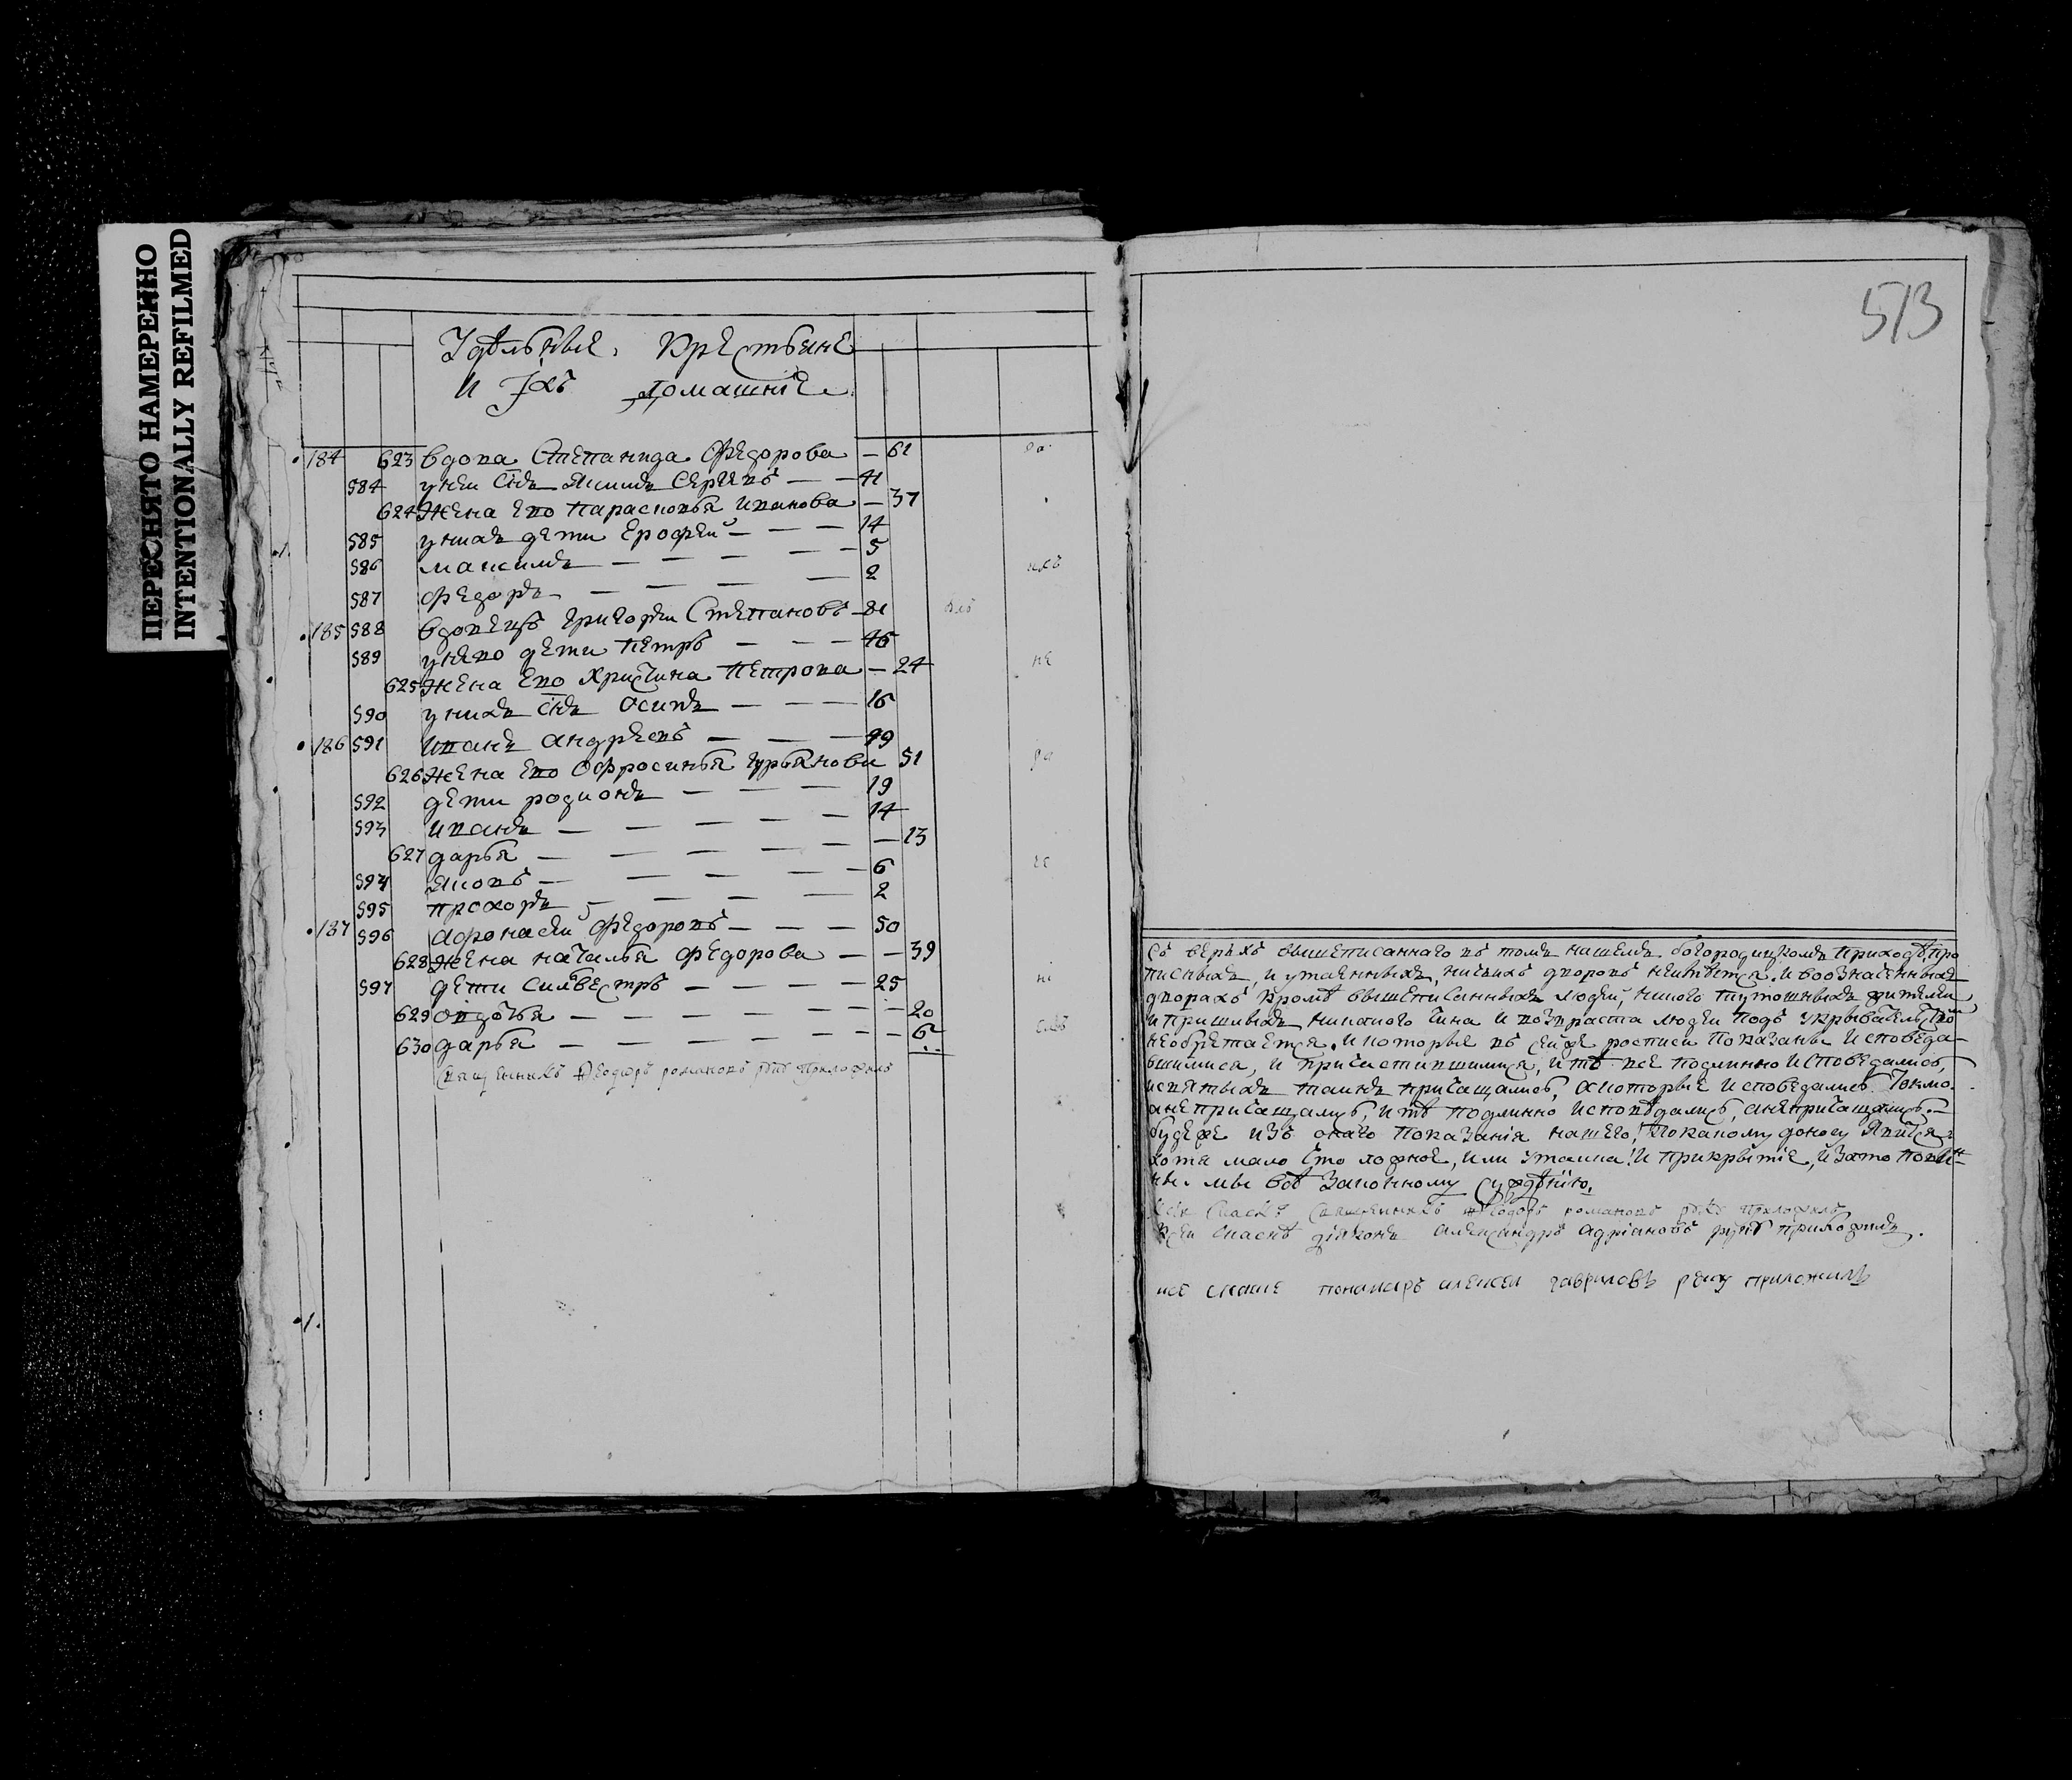 ПЕРЕСНЯТО НАМЕРЕННО
INTENTIONALLY REFILMED
Удѣльныя Крестьяне
и ихъ домашніе
184 623 вдова Степанида Федорова — 61
584 у неи снъ Акимъ Сергѣевъ — — 41
624 Жена его Парасковья Иванова — 37
585 у нихъ дети Ерофей — — — 14
586 Максимъ — — — — — 5
587 Федоръ — — — — 2
185 588 вдовецъ Григорѣи Степановъ — 81
589 у него дети Петръ — — — 46
625 Жена его Христина Петрова — 24
590 у нихъ снъ Осипъ — — — 16
186 591 Иванъ Андрѣевъ — — — 49
626 Жена его Офросинья Гурьянова 51
592 дети родионъ — — — 19
593 Иванъ — — — — — 14
627 дарья — — — — — — 13
594 Яковъ — — — — — 6
595 прохоръ — — — — 2
187 596 Афонасеи Федоровъ — — — 50
628 Жена наталья Федорова — — 39
597 дети Силвестръ — — — — 25
629 овдотья — — — — — — 20
630 дарья — — — — — — — 6
Священникъ Феодоръ романовъ приложилъ
513
Съ верьхъ вышеписаннаго въ томъ нашемъ богородицкомъ приходѣ, про
писныхъ, и утаенныхъ, никакихъ дворовъ неимѣется. и вообзначенныхъ
дворахъ кромѣ вышеписанныхъ людей, никого тутошныхъ жителеи
и пришлыхъ никакого чина и возраста людеи подъ укрывательствомъ
необретается. и которые въ сейже росписи показаны исповеда-
вшимися, и причастившимися, и тѣ все подлинно исповедались,
и святыхъ таинъ причащались, а которые исповедались токмо.
анепричащались, и тѣ подлинно исповѣдались, анепричащались.—
будеже изъ онаго показанія нашего, покакому доносу явится
хотя мало что ложное, или утаика! и прикрытіе, и зато повин-
ны мы всѣ законному сужденію.
Священникъ Феодоръ романовъ приложилъ
Къ сеи сказкѣ діаконъ Александръ Адріановъ руку приложилъ.
сказке понамарь алексеи гавриловъ руку приложилъ